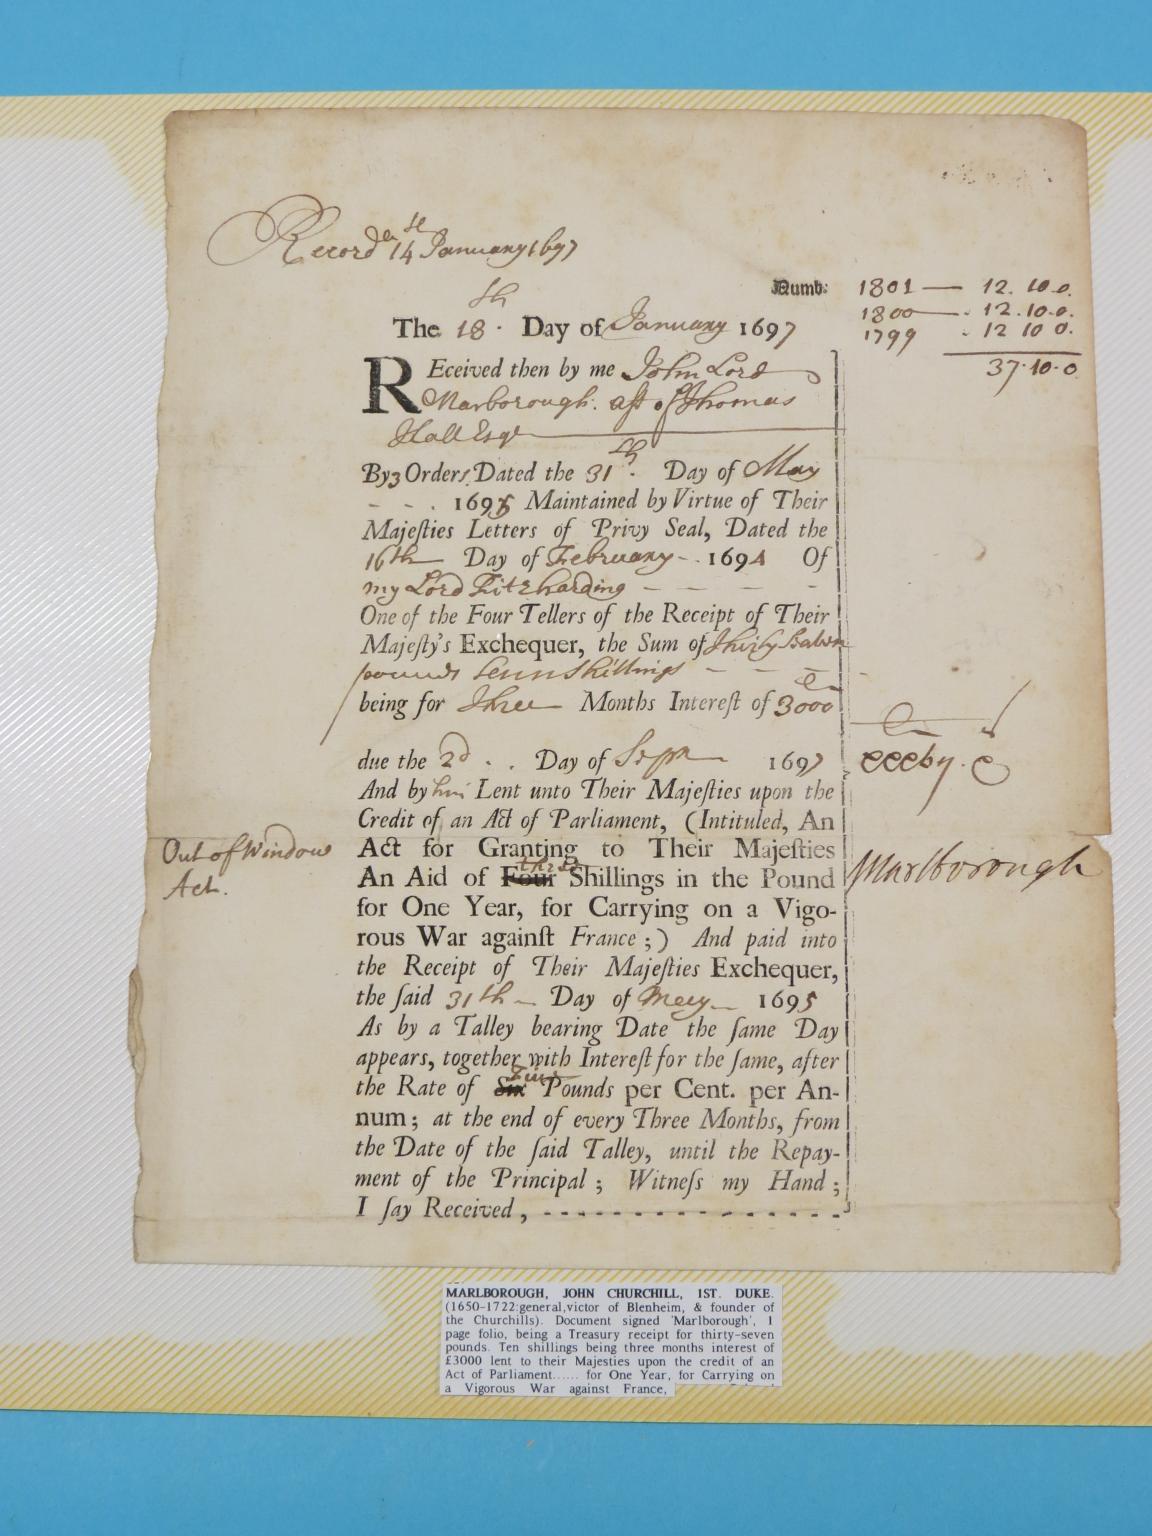 Record.d 14th January 1697
Numb: 1801 — 12. 10 0.
1800 — 12. 10. 0.
1799 - 12 10 0.
37. 10. 0
The 18.th Day of January 1697
REceived then by me John Lord
Marborough. asss of Thomas
Hall Esqr
By 3 Orders Dated the 31th. Day of May
- - . 1695 Maintained by Virtue of Their
Majeſties Letters of Privy Seal, Dated the
16th Day of February - . 1694 Of
my Lord Fitzharding - - - -
One of the Four Tellers of the Receipt of Their
Majeſty's Exchequer, the Sum of
pounds Tenn Shillings - - -
being for Three Months Intereſt of 3000
due the 2d . . Day of Sepr 1697
And by him Lent unto Their Majeſties upon the
Credit of an Act of Parliament, (Intituled, An
Out of Window
Act for Granting to Their Majeſties
Act.
An Aid of Four three Shillings in the Pound
Marlborough
for One Year, for Carrying on a Vigo-
rous War againſt France ;) And paid into
the Receipt of Their Majeſties Exchequer,
the ſaid 31th Day of Mey 1695
As by a Talley bearing Date the ſame Day
appears, together with Intereſt for the ſame, after
the Rate of Six Five Pounds per Cent. per An-
num; at the end of every Three Months, from
the Date of the ſaid Talley, until the Repay-
ment of the Principal ; Witneſs my Hand ;
I ſay Received, - - - - - - - - - - - - - - -
MARLBOROUGH, JOHN CHURCHILL, 1ST. DUKE.
(1650-1722:general,victor of Blenheim, & founder of
the Churchills). Document signed 'Marlborough', 1
page folio, being a Treasury receipt for thirty-seven
pounds. Ten shillings being three months interest of
£3000 lent to their Majesties upon the credit of an
Act of Parliament...... for One Year, for Carrying on
a Vigorous War against France,